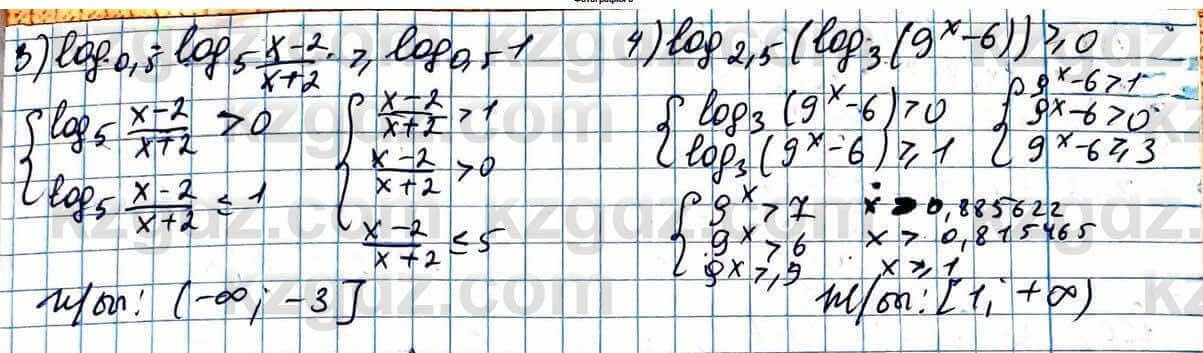 3) log₀,₅ log₅ x-2/x+2 ≥ log₀,₅ 1
{ log₅ x-2/x+2 > 0
log₅ x-2/x+2 ≤ 1
{ x-2/x+2 > 1
x-2/x+2 > 0
x-2/x+2 ≤ 5
ж/бы: (-∞; -3]
4) log₂,₅ (log₃ (9ˣ-6)) ≥ 0
{ log₃ (9ˣ-6) > 0
log₃ (9ˣ-6) ≥ 1
{ 9ˣ-6 > 1
9ˣ-6 > 0
9ˣ-6 ≥ 3
{ 9ˣ > 7 x > 0,885622
9ˣ > 6 x > 0,815465
9ˣ ≥ 9 x ≥ 1
: [1; +∞)
kzgdz.com